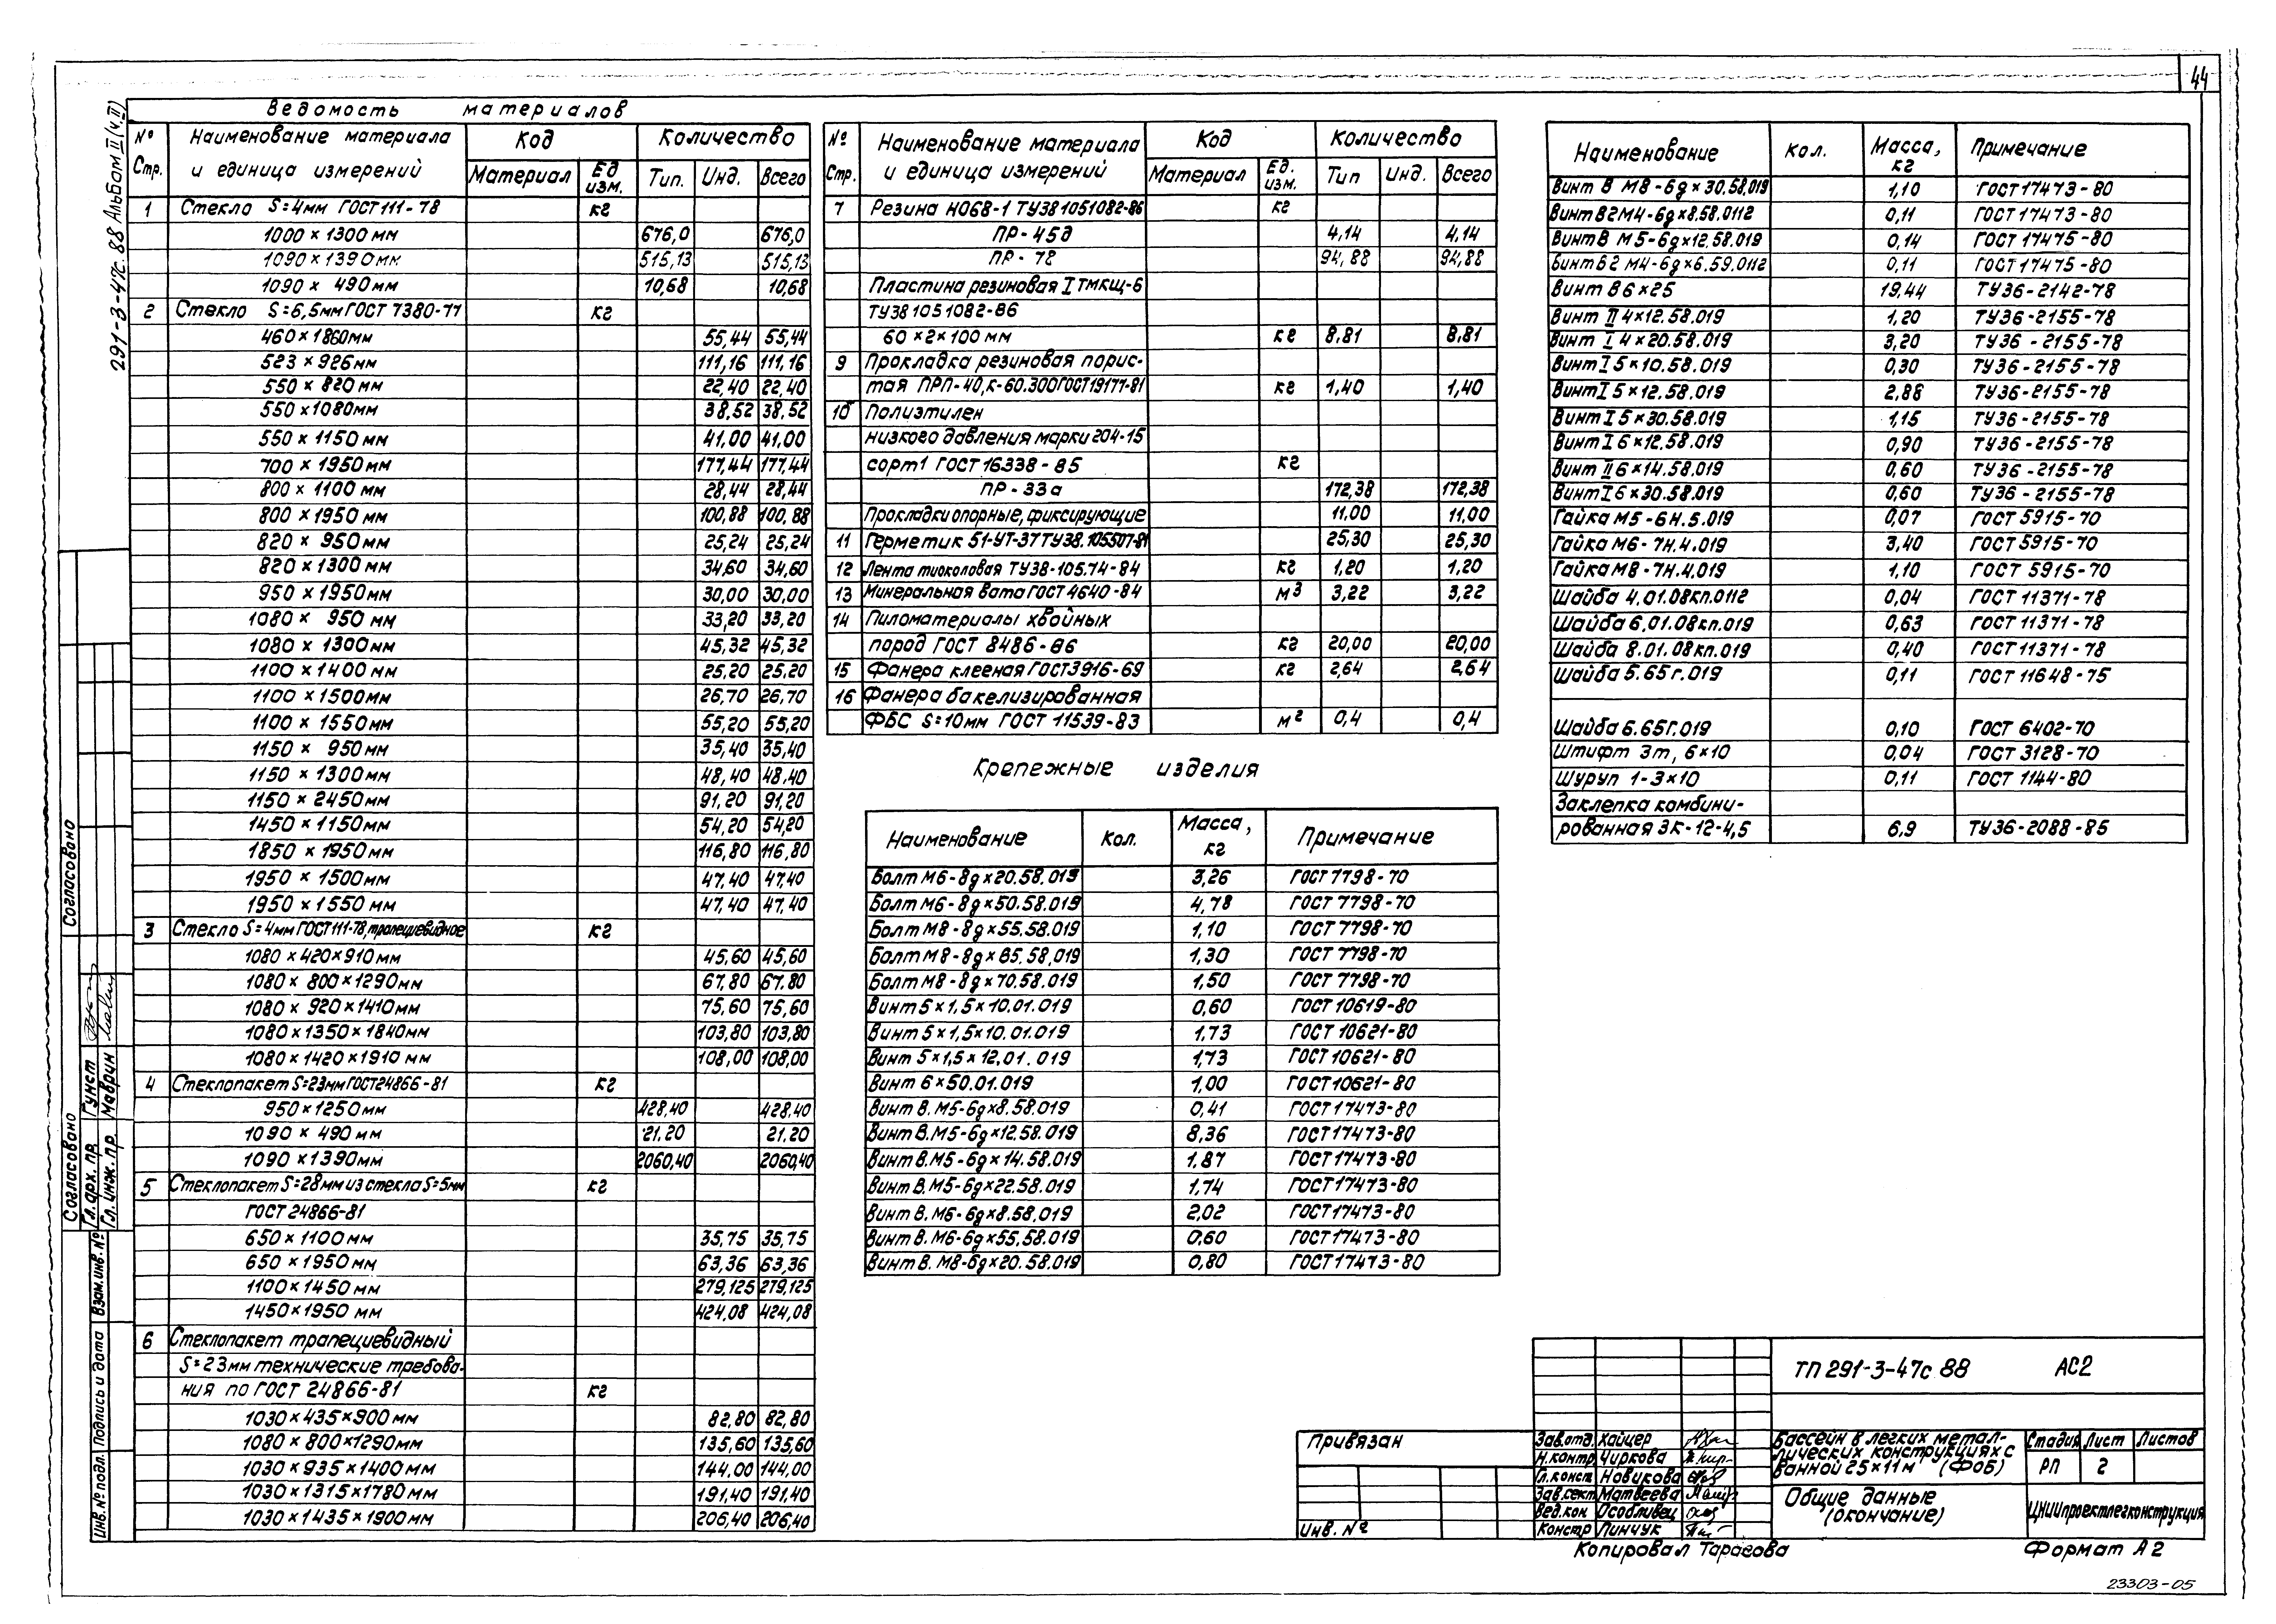 44
291-3-47с.88 Альбом II (ч.II)
Ведомость материалов
№ Стр. Наименование материала и единица измерений Код Количество
Материал Ед изм. Тип. Инд. Всего
1 Стекло S=4мм ГОСТ 111-78 кг
1000 × 1300 мм 676,0 676,0
1090 × 1390 мм 515,13 515,13
1090 × 490 мм 10,68 10,68
2 Стекло S=6,5мм ГОСТ 7380-77 кг
460 × 1860 мм 55,44 55,44
523 × 926 мм 111,16 111,16
550 × 820 мм 22,40 22,40
550 × 1080 мм 38,52 38,52
550 × 1150 мм 41,00 41,00
700 × 1950 мм 177,44 177,44
800 × 1100 мм 28,44 28,44
800 × 1950 мм 100,88 100,88
820 × 950 мм 25,24 25,24
820 × 1300 мм 34,60 34,60
950 × 1950 мм 30,00 30,00
1080 × 950 мм 33,20 33,20
1080 × 1300 мм 45,32 45,32
1100 × 1400 мм 25,20 25,20
1100 × 1500 мм 26,70 26,70
1100 × 1550 мм 55,20 55,20
1150 × 950 мм 35,40 35,40
1150 × 1300 мм 48,40 48,40
1150 × 2450 мм 91,20 91,20
1450 × 1150 мм 54,20 54,20
1850 × 1950 мм 116,80 116,80
1950 × 1500 мм 47,40 47,40
1950 × 1550 мм 47,40 47,40
3 Стекло S=4мм ГОСТ 111-78, трапецевидное кг
1080 × 420 × 910 мм 45,60 45,60
1080 × 800 × 1290 мм 67,80 67,80
1080 × 920 × 1410 мм 75,60 75,60
1080 × 1350 × 1840 мм 103,80 103,80
1080 × 1420 × 1910 мм 108,00 108,00
4 Стеклопакет S=23мм ГОСТ 24866-81 кг
950 × 1250 мм 428,40 428,40
1090 × 490 мм 21,20 21,20
1090 × 1390 мм 2060,40 2060,40
5 Стеклопакет S=28мм из стекла S=5мм кг
ГОСТ 24866-81
650 × 1100 мм 35,75 35,75
650 × 1950 мм 63,36 63,36
1100 × 1450 мм 279,125 279,125
1450 × 1950 мм 424,08 424,08
6 Стеклопакет трапециевидный
S=23мм технические требова-
ния по ГОСТ 24866-81 кг
1030 × 435 × 900 мм 82,80 82,80
1080 × 800 × 1290 мм 135,60 135,60
1030 × 935 × 1400 мм 144,00 144,00
1030 × 1315 × 1780 мм 191,40 191,40
1030 × 1435 × 1900 мм 206,40 206,40
№ Стр. Наименование материала и единица измерений Код Количество
Материал Ед. изм. Тип Инд. Всего
7 Резина НО68-1 ТУ38 1051082-86 кг
ПР-45д 4,14 4,14
ПР-78 94,88 94,88
Пластина резиновая I ТМКЩ-6
ТУ38 1051082-86
60 × 2 × 100 мм кг 8,81 8,81
9 Прокладка резиновая порис-
тая ПРП-40,К-60.300 ГОСТ 19177-81 кг 1,40 1,40
10 Полиэтилен
низкого давления марки 204-15
сорт 1 ГОСТ 16338-85 кг
ПР-33а 172,38 172,38
Прокладки опорные, фиксирующие 11,00 11,00
11 Герметик 51-УТ-37 ТУ38.105507-81 25,30 25,30
12 Лента тиоколовая ТУ38-105.74-84 кг 1,20 1,20
13 Минеральная вата ГОСТ 4640-84 м³ 3,22 3,22
14 Пиломатериалы хвойных
пород ГОСТ 8486-86 кг 20,00 20,00
15 Фанера клееная ГОСТ 3916-69 кг 2,64 2,64
16 Фанера бакелизированная
ФБС S=10мм ГОСТ 11539-83 м² 0,4 0,4
Крепежные изделия
Наименование Кол. Масса, кг Примечание
Болт М6-8g×20.58.019 3,26 ГОСТ 7798-70
Болт М6-8g×50.58.019 4,78 ГОСТ 7798-70
Болт М8-8g×55.58.019 1,10 ГОСТ 7798-70
Болт М8-8g×65.58.019 1,30 ГОСТ 7798-70
Болт М8-8g×70.58.019 1,50 ГОСТ 7798-70
Винт 5×1,5×10.01.019 0,60 ГОСТ 10619-80
Винт 5×1,5×10.01.019 1,73 ГОСТ 10621-80
Винт 5×1,5×12.01.019 1,73 ГОСТ 10621-80
Винт 6×50.01.019 1,00 ГОСТ 10621-80
Винт В.М5-6g×8.58.019 0,41 ГОСТ 17473-80
Винт В.М5-6g×12.58.019 8,36 ГОСТ 17473-80
Винт В.М5-6g×14.58.019 1,87 ГОСТ 17473-80
Винт В.М5-6g×22.58.019 1,74 ГОСТ 17473-80
Винт В.М6-6g×8.58.019 2,02 ГОСТ 17473-80
Винт В.М6-6g×55.58.019 0,60 ГОСТ 17473-80
Винт В.М8-6g×20.58.019 0,80 ГОСТ 17473-80
Наименование Кол. Масса, кг Примечание
Винт В М8-6g×30.58.019 1,10 ГОСТ 17473-80
Винт В2М4-6g×8.58.0112 0,11 ГОСТ 17473-80
Винт В М5-6g×12.58.019 0,14 ГОСТ 17475-80
Винт В2 М4-6g×6.59.0112 0,11 ГОСТ 17475-80
Винт В6×25 19,44 ТУ36-2142-78
Винт II 4×12.58.019 1,20 ТУ36-2155-78
Винт I 4×20.58.019 3,20 ТУ36-2155-78
Винт I 5×10.58.019 0,30 ТУ36-2155-78
Винт I 5×12.58.019 2,88 ТУ36-2155-78
Винт I 5×30.58.019 1,15 ТУ36-2155-78
Винт I 6×12.58.019 0,90 ТУ36-2155-78
Винт II 6×14.58.019 0,60 ТУ36-2155-78
Винт I 6×30.58.019 0,60 ТУ36-2155-78
Гайка М5-6Н.5.019 0,07 ГОСТ 5915-70
Гайка М6-7Н.4.019 3,40 ГОСТ 5915-70
Гайка М8-7Н.4.019 1,10 ГОСТ 5915-70
Шайба 4.01.08кп.0112 0,04 ГОСТ 11371-78
Шайба 6.01.08кп.019 0,63 ГОСТ 11371-78
Шайба 8.01.08кп.019 0,40 ГОСТ 11371-78
Шайба 5.65г.019 0,11 ГОСТ 11648-75
Шайба 6.65Г.019 0,10 ГОСТ 6402-70
Штифт 3т, 6×10 0,04 ГОСТ 3128-70
Шуруп 1-3×10 0,11 ГОСТ 1144-80
Заклепка комбини-
рованная ЗК-12-4,5 6,9 ТУ36-2088-85
Согласовано
Согласовано
Гл. арх. пр. Гунст
Гл. инж. пр. Маврин
Инв. № подл. Подпись и дата Взам. инв. №
Привязан
Инв. №
ТП 291-3-47с.88 АС2
Зав.отд. Хайцер
Н.контр Чиркова
Гл.конст Новикова
Зав.сект Матвеева
Вед.кон Особливец
Констр Пинчук
Бассейн в легких метал-
лических конструкциях с
ванной 25×11м (ФОБ)
Стадия Лист Листов
РП 2
Общие данные
(окончание)
ЦНИИпроектлегконструкция
Копировал Тарасова
Формат А2
23303-05